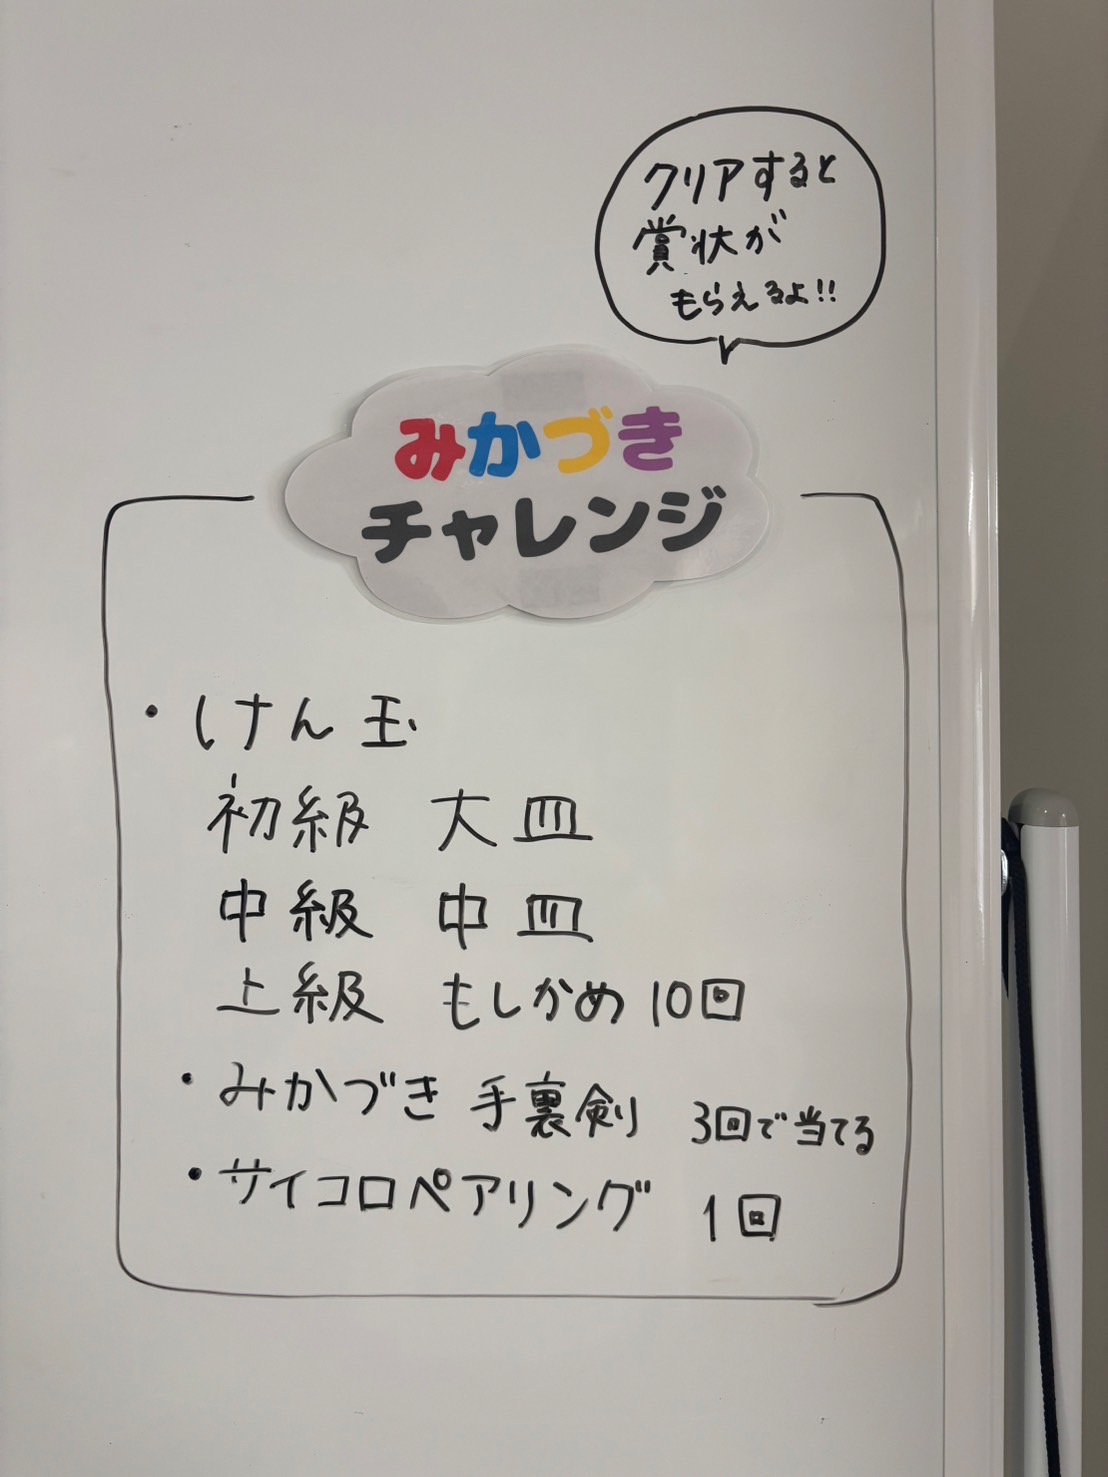 クリアすると
賞状が
もらえるよ!!
みかづき
チャレンジ
・けん玉
初級 大皿
中級 中皿
上級 もしかめ 10回
・みかづき 手裏剣 3回で当てる
・サイコロペアリング 1回